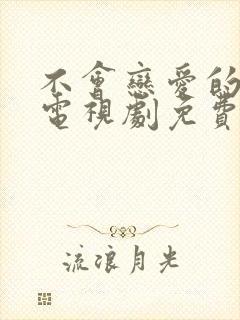 不會戀愛的
電視劇免費
流浪月光